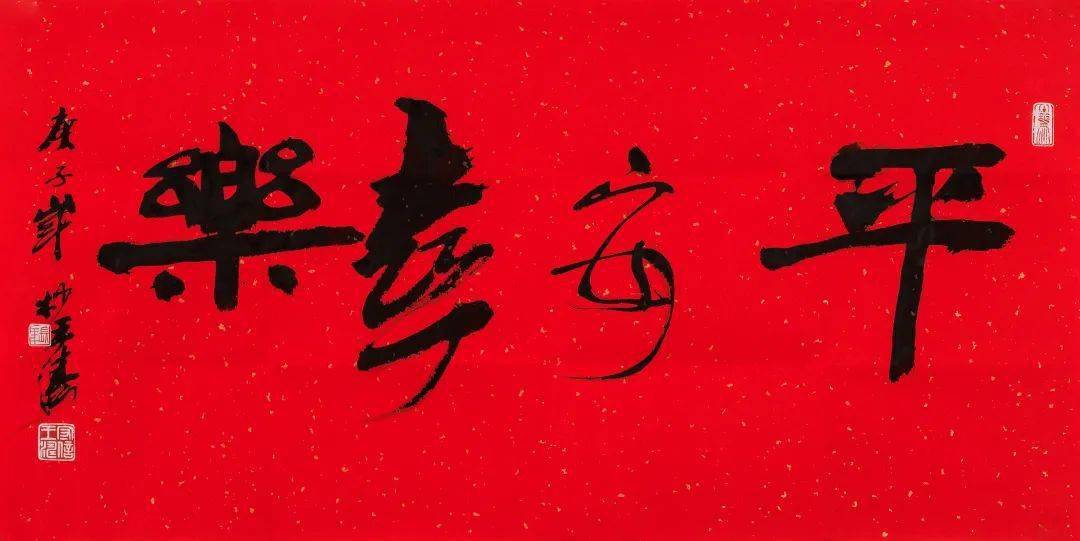 平安喜樂
庚子歲